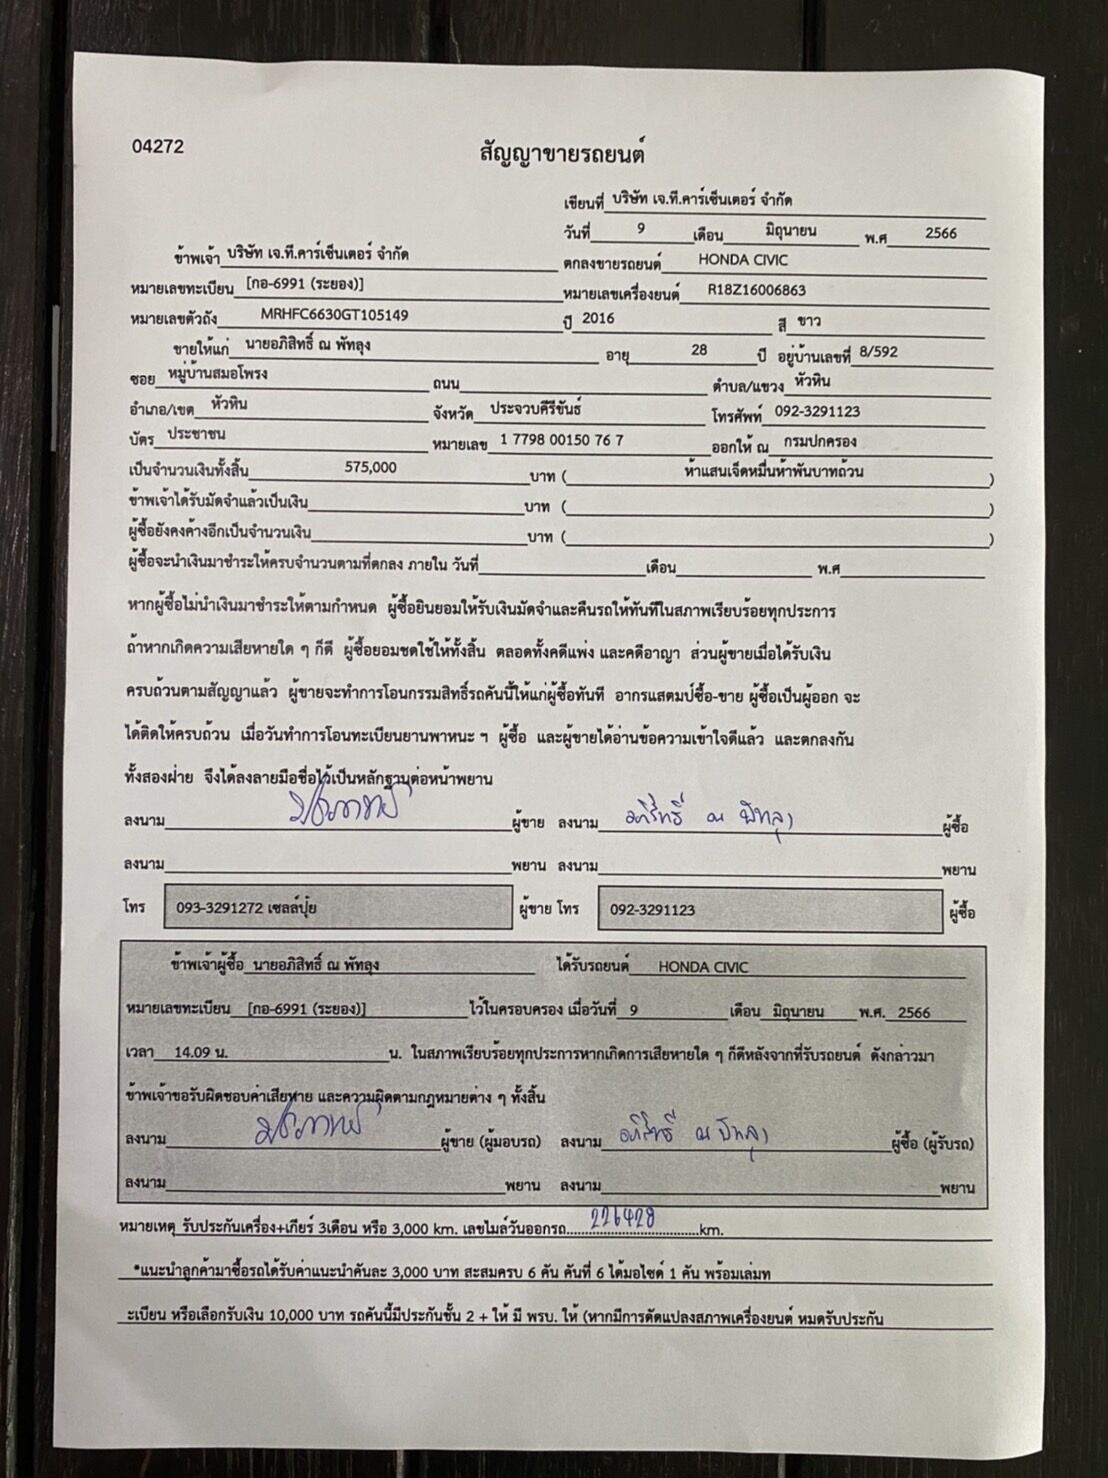 04272
สัญญาขายรถยนต์
เขียนที่ บริษัท เจ.ที.คาร์เซ็นเตอร์ จำกัด
วันที่ 9 เดือน มิถุนายน พ.ศ 2566
ข้าพเจ้า บริษัท เจ.ที.คาร์เซ็นเตอร์ จำกัด ตกลงขายรถยนต์ HONDA CIVIC
หมายเลขทะเบียน [กอ-6991 (ระยอง)] หมายเลขเครื่องยนต์ R18Z16006863
หมายเลขตัวถัง MRHFC6630GT105149 ปี 2016 สี ขาว
ขายให้แก่ นายอภิสิทธิ์ ณ พัทลุง อายุ 28 ปี อยู่บ้านเลขที่ 8/592
ซอย หมู่บ้านสมอโพรง ถนน ตำบล/แขวง หัวหิน
อำเภอ/เขต หัวหิน จังหวัด ประจวบคีรีขันธ์ โทรศัพท์ 092-3291123
บัตร ประชาชน หมายเลข 1 7798 00150 76 7 ออกให้ ณ กรมปกครอง
เป็นจำนวนเงินทั้งสิ้น 575,000 บาท ( ห้าแสนเจ็ดหมื่นห้าพันบาทถ้วน )
ข้าพเจ้าได้รับมัดจำแล้วเป็นเงิน บาท ( )
ผู้ซื้อยังคงค้างอีกเป็นจำนวนเงิน บาท ( )
ผู้ซื้อจะนำเงินมาชำระให้ครบจำนวนตามที่ตกลง ภายใน วันที่ เดือน พ.ศ
หากผู้ซื้อไม่นำเงินมาชำระให้ตามกำหนด ผู้ซื้อยินยอมให้รับเงินมัดจำและคืนรถให้ทันทีในสภาพเรียบร้อยทุกประการ
ถ้าหากเกิดความเสียหายใด ๆ ก็ดี ผู้ซื้อยอมชดใช้ให้ทั้งสิ้น ตลอดทั้งคดีแพ่ง และคดีอาญา ส่วนผู้ขายเมื่อได้รับเงิน
ครบถ้วนตามสัญญาแล้ว ผู้ขายจะทำการโอนกรรมสิทธิ์รถคันนี้ให้แก่ผู้ซื้อทันที อากรแสตมป์ซื้อ-ขาย ผู้ซื้อเป็นผู้ออก จะ
ได้ติดให้ครบถ้วน เมื่อวันทำการโอนทะเบียนยานพาหนะ ฯ ผู้ซื้อ และผู้ขายได้อ่านข้อความเข้าใจดีแล้ว และตกลงกัน
ทั้งสองฝ่าย จึงได้ลงลายมือชื่อไว้เป็นหลักฐานต่อหน้าพยาน
ลงนาม ผู้ขาย ลงนาม อภิสิทธิ์ ณ พัทลุง ผู้ซื้อ
ลงนาม พยาน ลงนาม พยาน
โทร 093-3291272 เซลล์ปุ๋ย ผู้ขาย โทร 092-3291123 ผู้ซื้อ
ข้าพเจ้าผู้ซื้อ นายอภิสิทธิ์ ณ พัทลุง ได้รับรถยนต์ HONDA CIVIC
หมายเลขทะเบียน [กอ-6991 (ระยอง)] ไว้ในครอบครอง เมื่อวันที่ 9 เดือน มิถุนายน พ.ศ. 2566
เวลา 14.09 น. น. ในสภาพเรียบร้อยทุกประการหากเกิดการเสียหายใด ๆ ก็ดีหลังจากที่รับรถยนต์ ดังกล่าวมา
ข้าพเจ้าขอรับผิดชอบค่าเสียหาย และความผิดตามกฎหมายต่าง ๆ ทั้งสิ้น
ลงนาม ผู้ขาย (ผู้มอบรถ) ลงนาม อภิสิทธิ์ ณ พัทลุง ผู้ซื้อ (ผู้รับรถ)
ลงนาม พยาน ลงนาม พยาน
หมายเหตุ รับประกันเครื่อง+เกียร์ 3เดือน หรือ 3,000 km. เลขไมล์วันออกรถ 226428 km.
*แนะนำลูกค้ามาซื้อรถได้รับค่าแนะนำคันละ 3,000 บาท สะสมครบ 6 คัน คันที่ 6 ได้มอไซด์ 1 คัน พร้อมเล่มท
ะเบียน หรือเลือกรับเงิน 10,000 บาท รถคันนี้มีประกันชั้น 2 + ให้ มี พรบ. ให้ (หากมีการดัดแปลงสภาพเครื่องยนต์ หมดรับประกัน